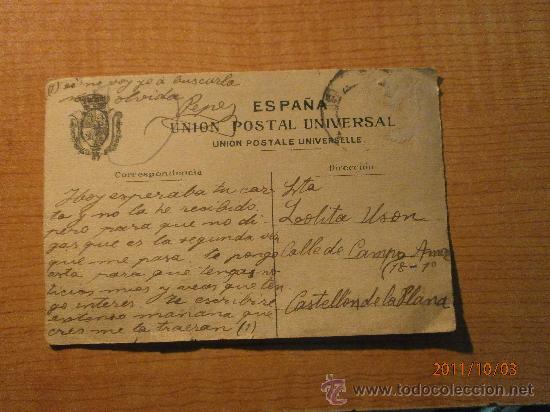 (1) si no voy yo a buscarla
no olvida
Pepe
ESPAÑA
UNION POSTAL UNIVERSAL
UNION POSTALE UNIVERSELLE
Correspondencia
Dirección
Hoy esperaba tu car-
ta y no la he recibido,
pero para que no di-
gas que es la segunda vez
que me pasa te pongo
esta para que tengas no-
ticias mias y veas que ten-
go interes. Te escribire
extenso mañana que
cres me la traeran (1)
Srta
Lolita Uson
Calle de Campo Amor
(18-1º
Castellon de la Plana
2011/10/03
todocoleccion
www.todocoleccion.net